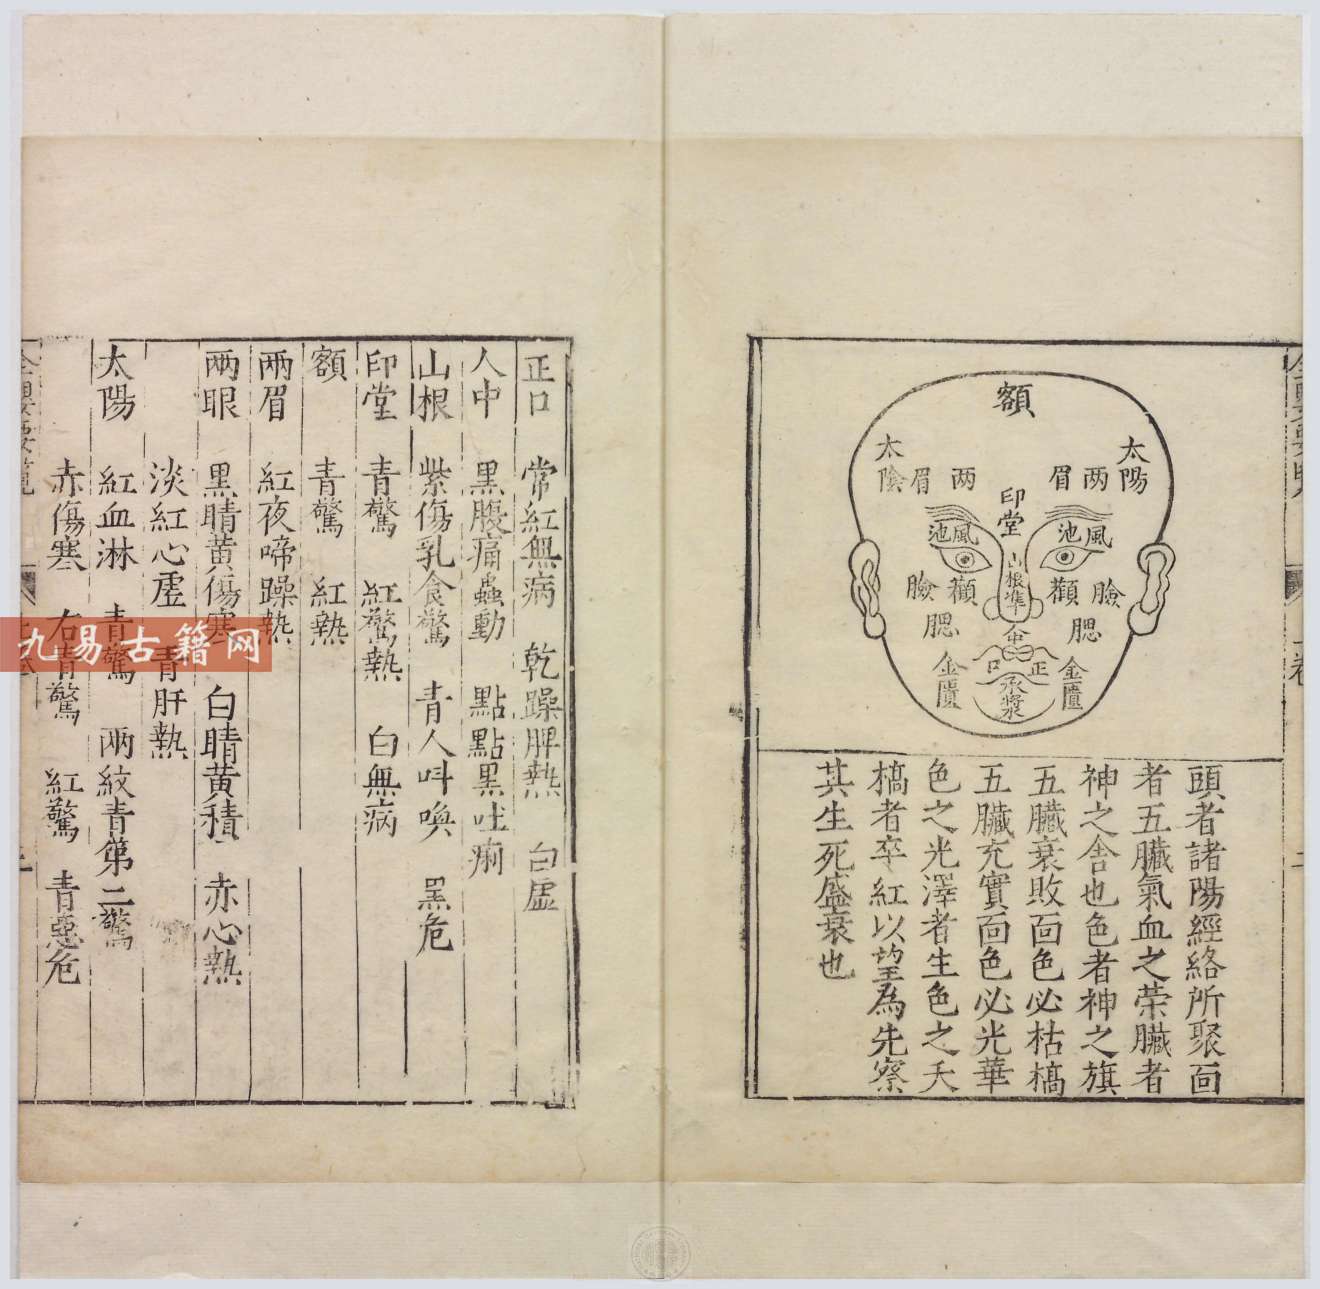 額
太陽
太陰
兩眉
两眉
印堂
風池
風池
山根
準
顴
臉
顴
臉
腮
腮
人中
正口
承漿
金匱
金匱
頭者諸陽經絡所聚面
者五臟氣血之荣臟者
神之舍也色者神之旗
五臟衰敗面色必枯槁
五臟充實面色必光華
色之光澤者生色之夭
槁者卒紅以望為先察
其生死盛衰也
正口 常紅無病 乾躁脾熱 白虛
人中 黑腹痛蟲動 點點黑吐痢
山根 紫傷乳食驚 青人呌喚 黑危
印堂 青驚 紅驚熱 白無病
額 青驚 紅熱
兩眉 紅夜啼躁熱
兩眼 黑睛黄傷寒 白睛黄積 赤心熱
淡紅心虛 青肝熱
太陽 紅血淋 青驚 兩紋青第二驚
赤傷寒 右青驚 紅驚 青惡危
九易古籍网